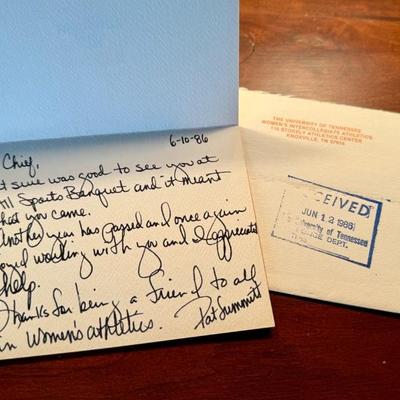 6-10-86
Chief,
t sure was good to see you at
Sports Banquet and it meant
that you came.
Another year has passed and once again
working with you and I appreciated
help.
Thanks for being a friend to all
in women's athletics. Pat Summitt
THE UNIVERSITY OF TENNESSEE
WOMEN'S INTERCOLLEGIATE ATHLETICS
115 STOKELY ATHLETICS CENTER
KNOXVILLE, TN 37916
CEIVED
JUN 12 1986
University of Tennessee
DEPT.